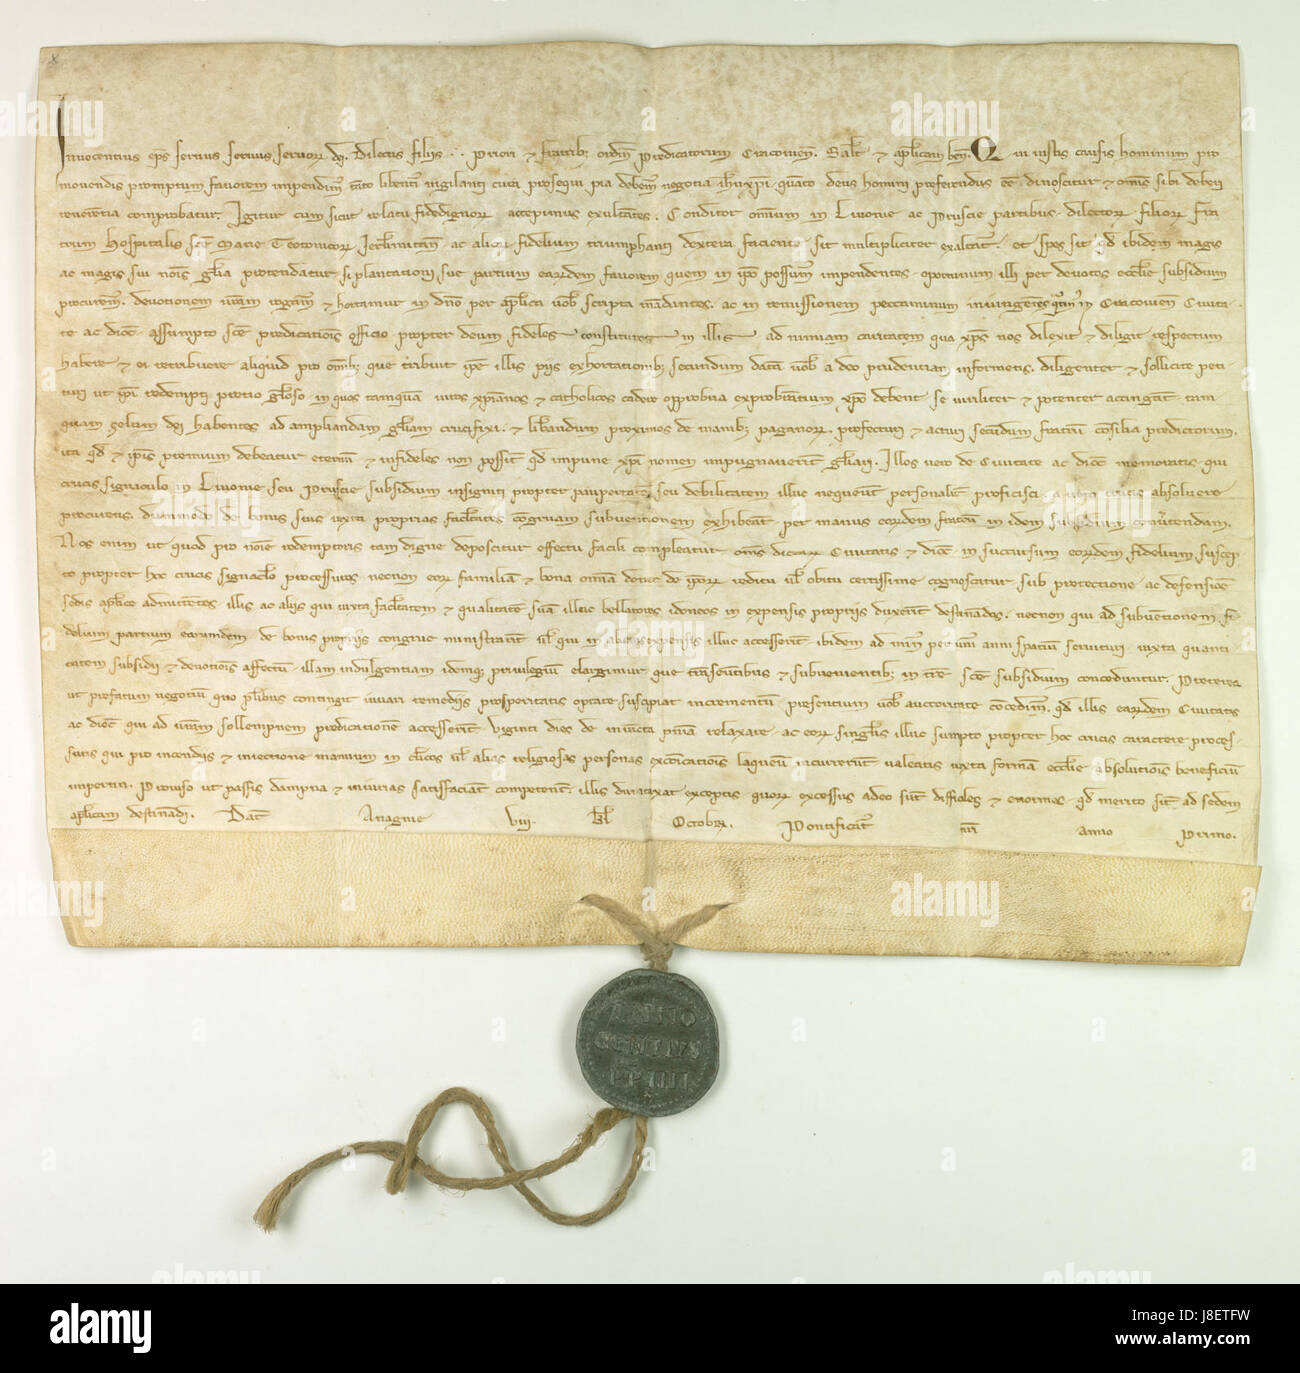 Innocentius eps servus servus servorꝝ dj. Dilectis filijs . . Priori ⁊ fratribꝫ ordīs Predicatorum Cracovien̄. Salt̄ ⁊ apl̄icam ben̄. Q in iustis causis hominum pro
movendis promptum favorem impendim̄ tāto libent̄i vigilanti cura prosequi pia debem̄ negotia quāto deus homini preferendus eē dinoscitur ⁊ om̄s sibi deberi
reverētia comprobatur. Igitur cum sicut relatu fidedignorꝝ accepimus exultātes. Conditor om̄ium in Livonie ac Pruscie partibus dilectorꝝ filiorꝝ fra
trum Hospitalis sc̄e Marie Teotonicorꝝ Ierl̄imitan̄ ac aliorꝝ fidelium triumphanti dextera faciente sit multipliciter exaltat̄. et spes sit qd̄ ibidem magis
ac magis sui nōis gl̄ia protendatur, si plantationi sue partium earꝝdem favorem quem in ip̄o possum̄ impendentes oportunum illi per devotos eccl̄ie subsidium
procurem̄. devotionem vr̄am rogam̄ ⁊ hortamur in dn̄o per apl̄ica vob̄ scripta mādantes. ac in remissionem peccaminum iniungentes in Cracovien̄ Civita
te ac dioc̄ assumpto sc̄e predicatiōis officio propter deum fideles constitutos in illis ad nimiam caritatem qua xp̄s nos dilexit ⁊ diligit respectum
habere ⁊ ei retribuere aliquid pro om̄ibꝫ que tribuit ip̄e illis piis exhortationibꝫ secundum datā vob̄ a deo prudentiam informetis. diligenter ⁊ sollicite peti
turi ut ip̄i redempti pretio gl̄oso in quos tamquā viros xp̄ianos ⁊ catholicos cadere opprobria exprobrātium xp̄o debent se viriliter ⁊ potenter accingāt tam
quam zelum dei habentes ad ampliandam gl̄iam crucifixi ⁊ lib̄andum proximos de manibꝫ paganorꝝ. profecturi ⁊ acturi secūdum fratrū cōsilia predictorum.
ita qd̄ ⁊ ip̄is premium debeatur eternū ⁊ infideles non possīt qd̄ impune xp̄i nomen impugnaverīt gl̄iari. Illos vero de Civitate ac dioc̄ memoratis qui
crucis signaculo in Livonie seu Pruscie subsidium insigniti propter paupertatē seu debilitatem illuc nequeūt personalit̄ proficisci a voto crucis absolvere
procuretis. dummodo de bonis suis iuxta proprias facl̄tates cōgruam subventionem exhibeāt per manus eorꝝdem fratrū in idem subsidium cōv̄tendam.
Nos enim ut quod pro nōie redemptoris tam digne deposcitur effectu facili compleatur om̄s dictarꝝ Civitatis ⁊ dioc̄ in succursum eorꝝdem fidelium suscep
to propter hoc crucis signacl̄o processuros necnon eorꝝ familiā ⁊ bona om̄ia donec de ip̄orꝝ reditu vl̄ obitu certissime cognoscitur sub protectione ac defensiōe
sedis apl̄ice admittētes. illis ac alijs qui iuxta facl̄tatem ⁊ qualitatē suā illuc bellatores idoneos in expensis propriis duxerīt destinādos. necnon qui ad subvētionem fi
delium partium earundem de bonis propriis congrue ministrarīt vl̄ qui in alienis expensis illuc accesserīt ibidem ad min̄ per unī anni spatiū servituri iuxta quanti
tatem subsidii ⁊ devotiōis affectū. illam indulgentiam idemqꝫ privilegiū elargimur que trāseūtibus ⁊ subvenientibꝫ in tr̄re sc̄e subsidium conceduntur. Preterea
ut prefatum negotiū quo pl̄ribus contingit iuvari remediis prosperitatis optate suscipiat incrementū presentium vob̄ auctoritate cōcedim̄. qd̄ illis earꝝdem Civitatis
ac dioc̄ qui ad vr̄am sollempnem predicationē accesserīt viginti dies de iniūcta pn̄ia relaxare. ac eorꝝ singl̄is illuc sumpto propter hoc crucis caractere proces-
suris qui pro incendijs ⁊ iniectione manuum in cl̄icos vl̄ alias religiosas personas excōicatiōis laqueū incurrerūt valeatis iuxta formā eccl̄ie absolutiōis beneficiū
impertiri. Proviso ut passis dampna ⁊ iniurias satisfaciāt competent̄. illis dumtaxat exceptis quorꝝ excessus adeo sūt difficiles ⁊ enormes qd̄ merito sīt ad sedem
apl̄icam destinādi. Dat̄ Anagnie viij. kl̄ Octobrꝝ. Pontificat̄ nr̄i anno Primo.
INNO
CENTIVS
PP IIII